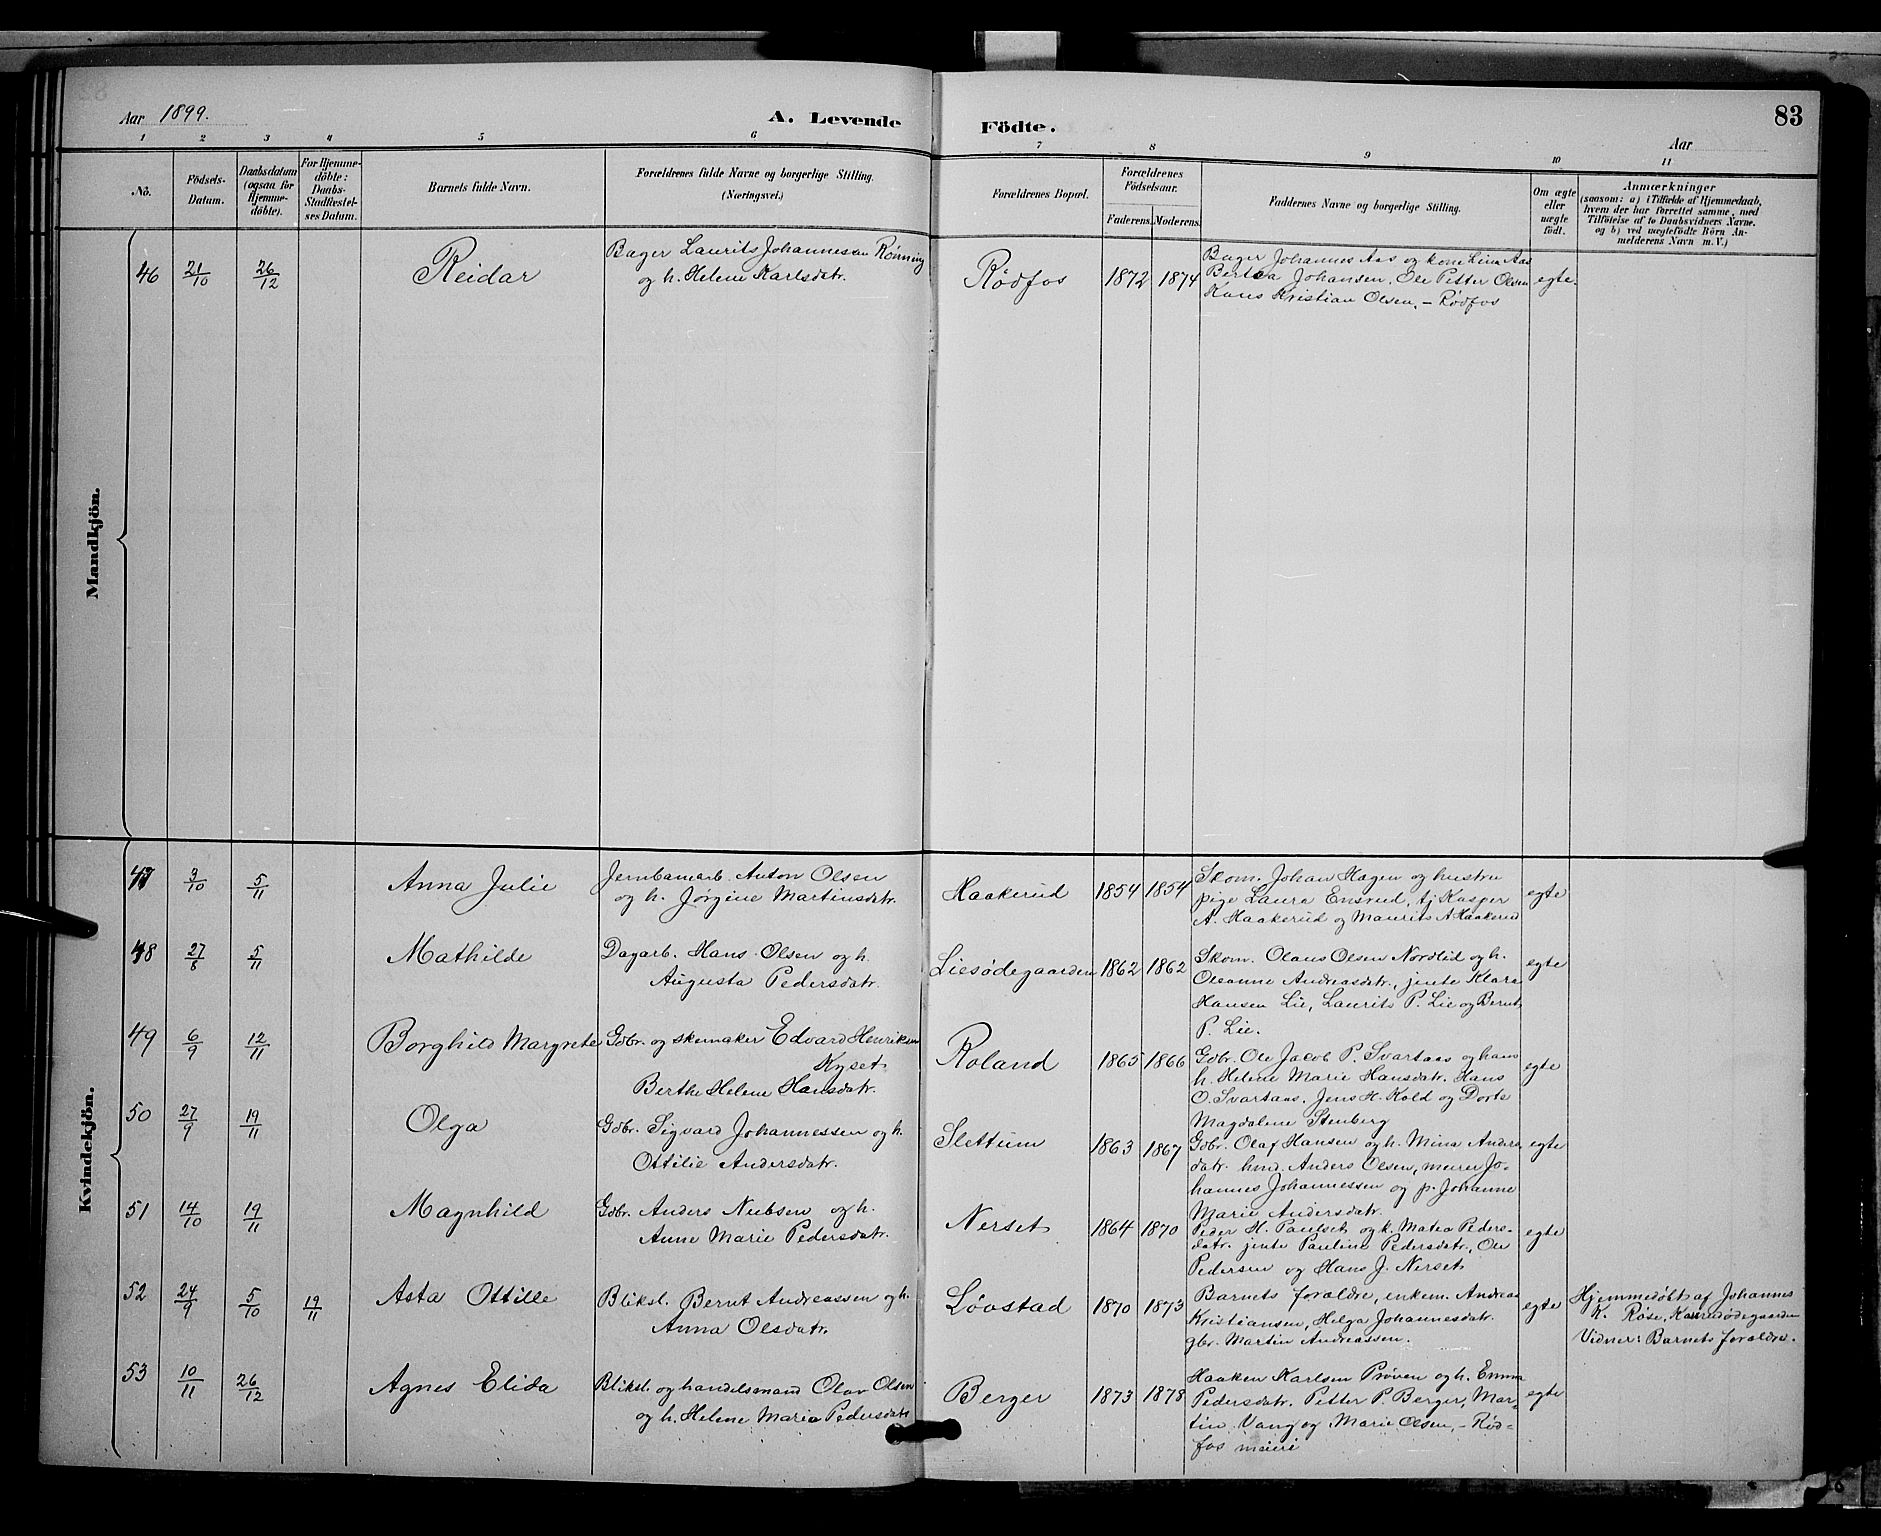 Aar 1899.
A. Levende Födte.
83
Aar
1 2 3 4 5 6 7 8 9 10 11
No.
Födsels-Datum.
Daabsdatum (ogsaa for Hjemme-döbte).
For Hjemme-döbte: Daabs-Stadfæstel-ses Datum.
Barnets fulde Navn.
Forældrenes fulde Navne og borgerlige Stilling.
(Næringsvei.)
Forældrenes Bopæl.
Forældrenes Födselsaar.
Faderens. Moderens.
Faddernes Navne og borgerlige Stilling.
Om ægte eller uægte födt.
Anmærkninger
(saasom: a) i Tilfælde af Hjemmedaab,
hvem der har forrettet samme, med
Tilföielse af to Daabsvidners Navne.
og b) ved uægtefödte Börn An-
melderens Navn m. V.)
Mandkjön.
46 21/10 26/12 Reidar
Bager Laurits Johannesen Rønning
og h. Helene Karlsdatr.
Rødfos 1872 1874
Bager Johannes Aas og kone Lina Aas
Bertea Johansen, Ole Petter Olsen
Hans Kristian Olsen, – Rødfos
egte.
Kvindekjön.
47 3/10 5/11 Anna Julie
Jernbanarb. Anton Olsen
og h. Jørgine Martinsdatr.
Haakerud 1854 1854
Skom. Johan Hagen og hustru
pige Laura Ensrud, tj Kasper
A. Haakerud og Maurits A Haakerud
egte
48 27/8 5/11 Mathilde
Dagarb. Hans Olsen og h.
Augusta Pedersdatr.
Liesødegaarden 1862 1862
Skom. Olaus Olsen Nordlid og h.
Oleanne Andreasdatr., jente Klara
Hansen Lie, Laurits P. Lie og Bernt
P. Lie.
egte
49 6/9 12/11 Borghild Margrete
Gdbr. og skomaker Edvard Henriksen
Kyset
Berthe Helene Hansdatr.
Roland 1865 1866
Gdbr. Ole Jacob P. Svartaas og hans
h. Helene Marie Hansdatr. Hans
O. Svartaas, Jens H. Kold og Dorte
Magdalene Stenberg
egte
50 27/9 19/11 Olga
Gdbr. Sigvard Johannessen og h.
Ottilie Andersdatr.
Slettum 1863 1867
Gdbr. Olaf Hansen og h. Mina Anders
datr. hmd. Anders Olsen, meier Jo-
hannes Johannessen og p. Johanne
Marie Andersdatr.
egte
51 14/10 19/11 Magnhild
Gdbr. Anders Nielsen og h.
Anne Marie Pedersdatr.
Nerset 1864 1870
Peder H. Paulset og k. Matea Peders-
datr. jente Pauline Pedersdatr., Ole
Pedersen og Hans J. Nerset
egte
52 24/9 5/10 19/11 Asta Ottilie
Bliksl. Bernt Andreassen og h.
Anna Olsdatr.
Løvstad 1870 1873
Barnets foraldre, enkem. Andreas
Kristiansen, Helga Johannesdatr.
gbr. Martin Andreassen.
egte
Hjemmedøbt af Johannes
K. Røse,
Vidner: Barnets foraldre.
53 10/11 26/12 Agnes Elida
Bliksl. og handelsmand Olav Olsen
og h. Helene Maria Pedersdatr
Berger 1873 1878
Haaken Karlsen Prøven og h. Emma
Pedersdatr. Petter P. Berger, Mar-
tin Vang og Marie Olsen, – Rød-
fos meieri
egte